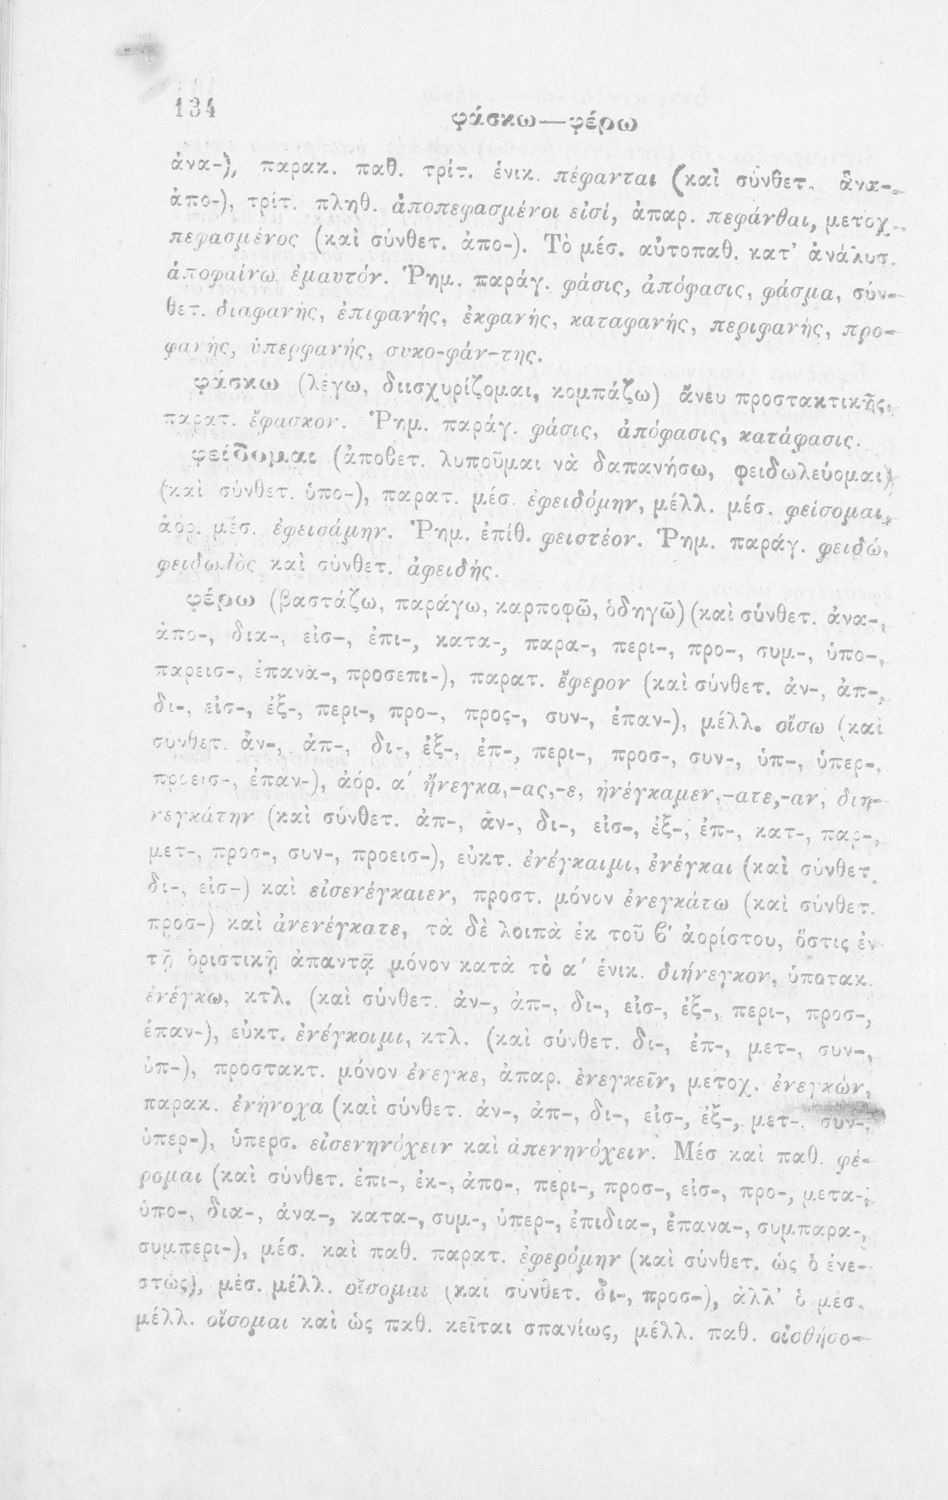 134
φάσκω—φέρω
ἀνα-), παρακ. παθ. τρίτ. ἑνικ. πέφανται (καὶ σύνθετ. ἀνα-,
ἀπο-), τρίτ. πληθ. ἀποπεφασμένοι εἰσί, ἀπαρ. πεφάνθαι, μετοχ.
πεφασμένος (καὶ σύνθετ. ἀπο-). Τὸ μέσ. αὐτοπαθ. κατ’ ἀνάλυσ.
ἀποφαίνω ἐμαυτόν. Ῥημ. παράγ. φάσις, ἀπόφασις, φάσμα, σύν-
θετ. διαφανής, ἐπιφανής, ἐκφανής, καταφανής, περιφανής, προ-
φανής, ὑπερφανής, συκο-φάν-της.
φάσκω (λέγω, διισχυρίζομαι, κομπάζω) ἄνευ προστακτικῆς,
παρατ. ἔφασκον. Ῥημ. παράγ. φάσις, ἀπόφασις, κατάφασις.
φείδομαι (ἀποθετ. λυποῦμαι νὰ δαπανήσω, φειδωλεύομαι)
(καὶ σύνθετ. ὑπο-), παρατ. μέσ. ἐφειδόμην, μέλλ. μέσ. φείσομαι,
ἀόρ. μέσ. ἐφεισάμην. Ῥημ. ἐπίθ. φειστέον. Ῥημ. παράγ. φειδώ,
φειδωλὸς καὶ σύνθετ. ἀφειδής.
φέρω (βαστάζω, παράγω, καρποφῶ, ὁδηγῶ) (καὶ σύνθετ. ἀνα-,
ἀπο-, δια-, εἰσ-, ἐπι-, κατα-, παρα-, περι-, προ-, συμ-, ὑπο-,
παρεισ-, ἐπανα-, προσεπι-), παρατ. ἔφερον (καὶ σύνθετ. ἀν-, ἀπ-,
δι-, εἰσ-, ἐξ-, περι-, προ-, προς-, συν-, ἐπαν-), μέλλ. οἴσω (καὶ
σύνθετ. ἀν-, ἀπ-, δι-, ἐξ-, ἐπ-, περι-, προσ-, συν-, ὑπ-, ὑπερ-,
προεισ-, ἐπαν-), ἀόρ. α΄ ἤνεγκα,-ας,-ε, ἠνέγκαμεν,-ατε,-αν, διη-
νεγκάτην (καὶ σύνθετ. ἀπ-, ἀν-, δι-, εἰσ-, ἐξ-, ἐπ-, κατ-, παρ-,
μετ-, προσ-, συν-, προεισ-), εὐκτ. ἐνέγκαιμι, ἐνέγκαι (καὶ σύνθετ.
δι-, εἰσ-) καὶ εἰσενέγκαιεν, προστ. μόνον ἐνεγκάτω (καὶ σύνθετ.
προσ-) καὶ ἀνενέγκατε, τὰ δὲ λοιπὰ ἐκ τοῦ β΄ ἀορίστου, ὅστις ἐν
τῇ ὁριστικῇ ἀπαντᾷ μόνον κατὰ τὸ α΄ ἑνικ. διήνεγκον, ὑποτακ.
ἐνέγκω, κτλ. (καὶ σύνθετ. ἀν-, ἀπ-, δι-, εἰσ-, ἐξ-, περι-, προσ-,
ἐπαν-), εὐκτ. ἐνέγκοιμι, κτλ. (καὶ σύνθετ. δι-, ἐπ-, μετ-, συν-,
ὑπ-), προστακτ. μόνον ἔνεγκε, ἀπαρ. ἐνεγκεῖν, μετοχ. ἐνεγκών,
παρακ. ἐνήνοχα (καὶ σύνθετ. ἀν-, ἀπ-, δι-, εἰσ-, ἐξ-, μετ-, συν-,
ὑπερ-), ὑπερσ. εἰσενηνόχειν καὶ ἀπενηνόχειν. Μέσ καὶ παθ. φέ-
ρομαι (καὶ σύνθετ. ἐπι-, ἐκ-, ἀπο-, περι-, προσ-, εἰσ-, προ-, μετα-,
ὑπο-, δια-, ἀνα-, κατα-, συμ-, ὑπερ-, ἐπιδια-, ἐπανα-, συμπαρα-,
συμπερι-), μέσ. καὶ παθ. παρατ. ἐφερόμην (καὶ σύνθετ. ὡς ὁ ἐνε-
στώς), μέσ. μέλλ. οἴσομαι (καὶ σύνθετ. δι-, προσ-), ἀλλ’ ὁ μέσ.
μέλλ. οἴσομαι καὶ ὡς παθ. κεῖται σπανίως, μέλλ. παθ. οἰσθήσο-